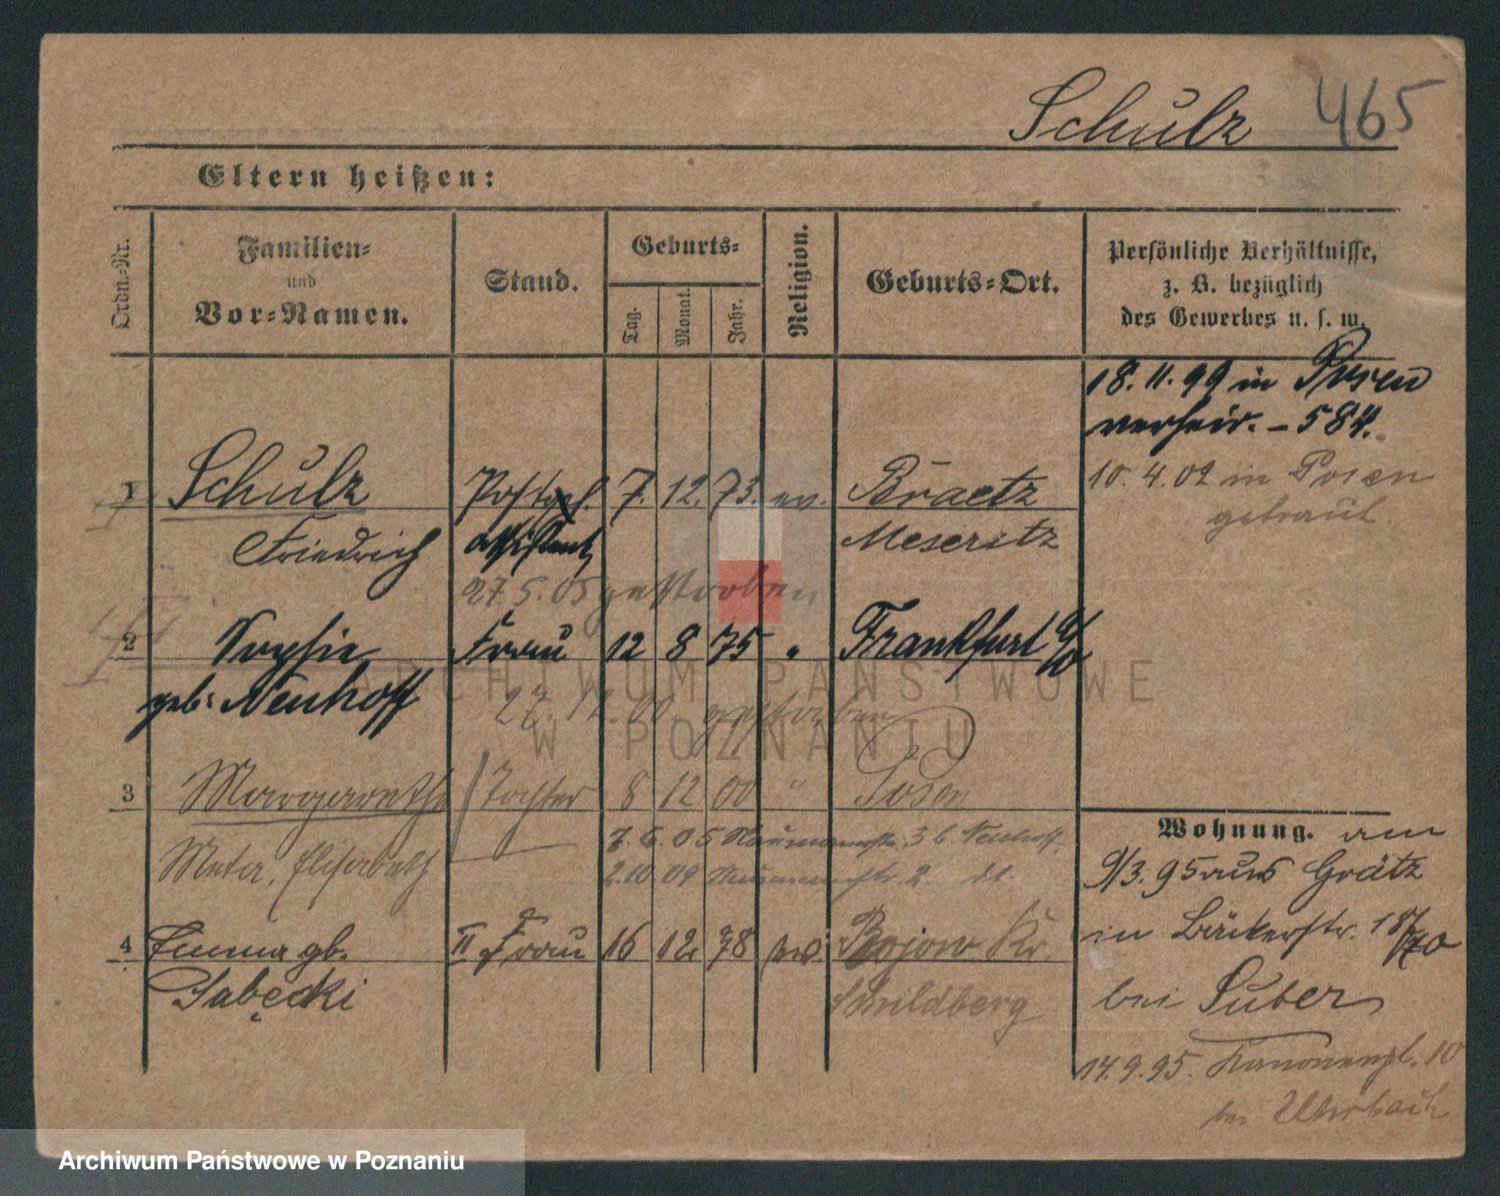 Schulz 465
Eltern heißen:
Ordn.-Nr.
Familien-
und
Vor-Namen.
Stand.
Geburts-
Tag.
Monat.
Jahr.
Religion.
Geburts-Ort.
Persönliche Verhältnisse,
z. B. bezüglich
des Gewerbes u. s. w.
18. 11. 99 in Posen
verheir. - 584.
10. 4. 02 in Posen
getraut
1 Schulz 7. 12. 73. ev. Braetz
Friedrich assistent Meseritz
27. 5. 05 gestorben
2 Sophie Frau 12 8 75 " Frankfurt a/O
geb. Neuhoff
27. 12. 00. gestorben
3 Margarethe Tochter 8 12 00 " Posen
Meta, Elisabeth
7. 6. 05 Naumannstr. 3 b. Neuhoff
2. 10. 09 Naumannstr. 2.
4 Emma gb. II Frau 16 12 78 ev. Bojow Kr.
Sabecki Schildberg
Wohnung. am
9/3. 95 aus Grätz
in Bäckerstr.
bei Suber
14. 9. 95. Kanonenpl. 10
bei
ARCHIWUM PAŃSTWOWE
W POZNANIU
Archiwum Państwowe w Poznaniu